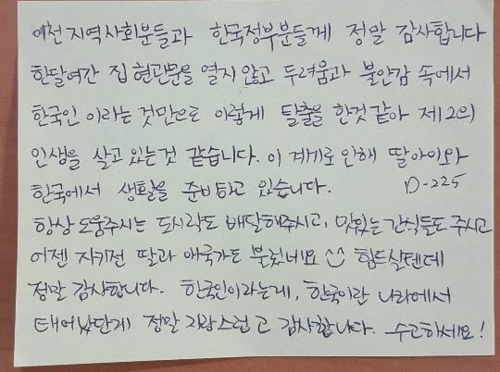 이천 지역사회분들과 한국정부분들게 정말 감사합니다
한달여간 집 현관문을 열지 않고 두려움과 불안감 속에서
한국인 이라는 것만으로 이렇게 탈출을 한것 같아 제2의
인생을 살고 있는것 같습니다. 이 계기로 인해 딸아이와
한국에서 생활을 준비하고 있습니다. D-225
항상 도움주시는 도시락도 배달해주시고, 맛있는 간식들도 주시고
어젠 자기전 딸과 애국가도 불렀네요 힘드실텐데
정말 감사합니다. 한국인이라는게, 한국이란 나라에서
태어났단게 정말 자랑스럽고 감사합니다. 수고하세요!